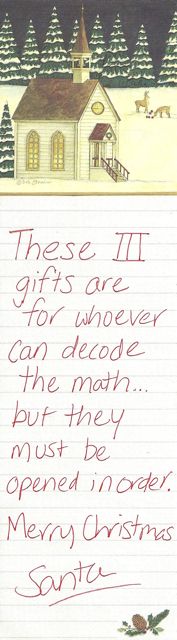 These III
gifts are
for whoever
can decode
the math...
but they
must be
opened in order.
Merry Christmas
Santa